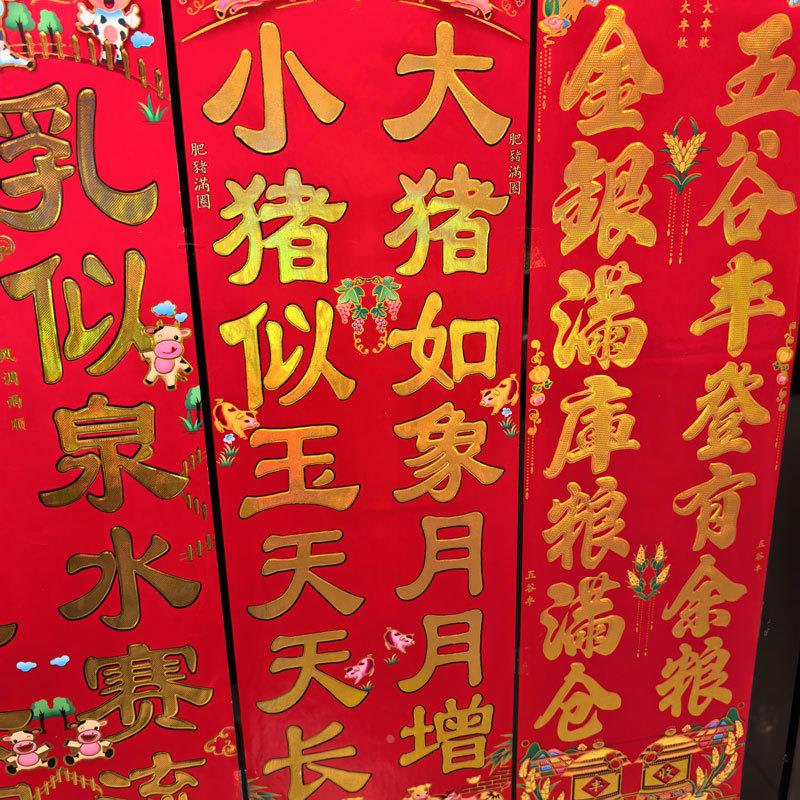 五谷丰登有余粮
大丰收
大丰收
金銀滿庫粮滿仓
五谷丰
五谷丰
丰收
大猪如象月月增
肥豬滿圈
小猪似玉天天长
肥豬滿圈
乳似泉水赛流